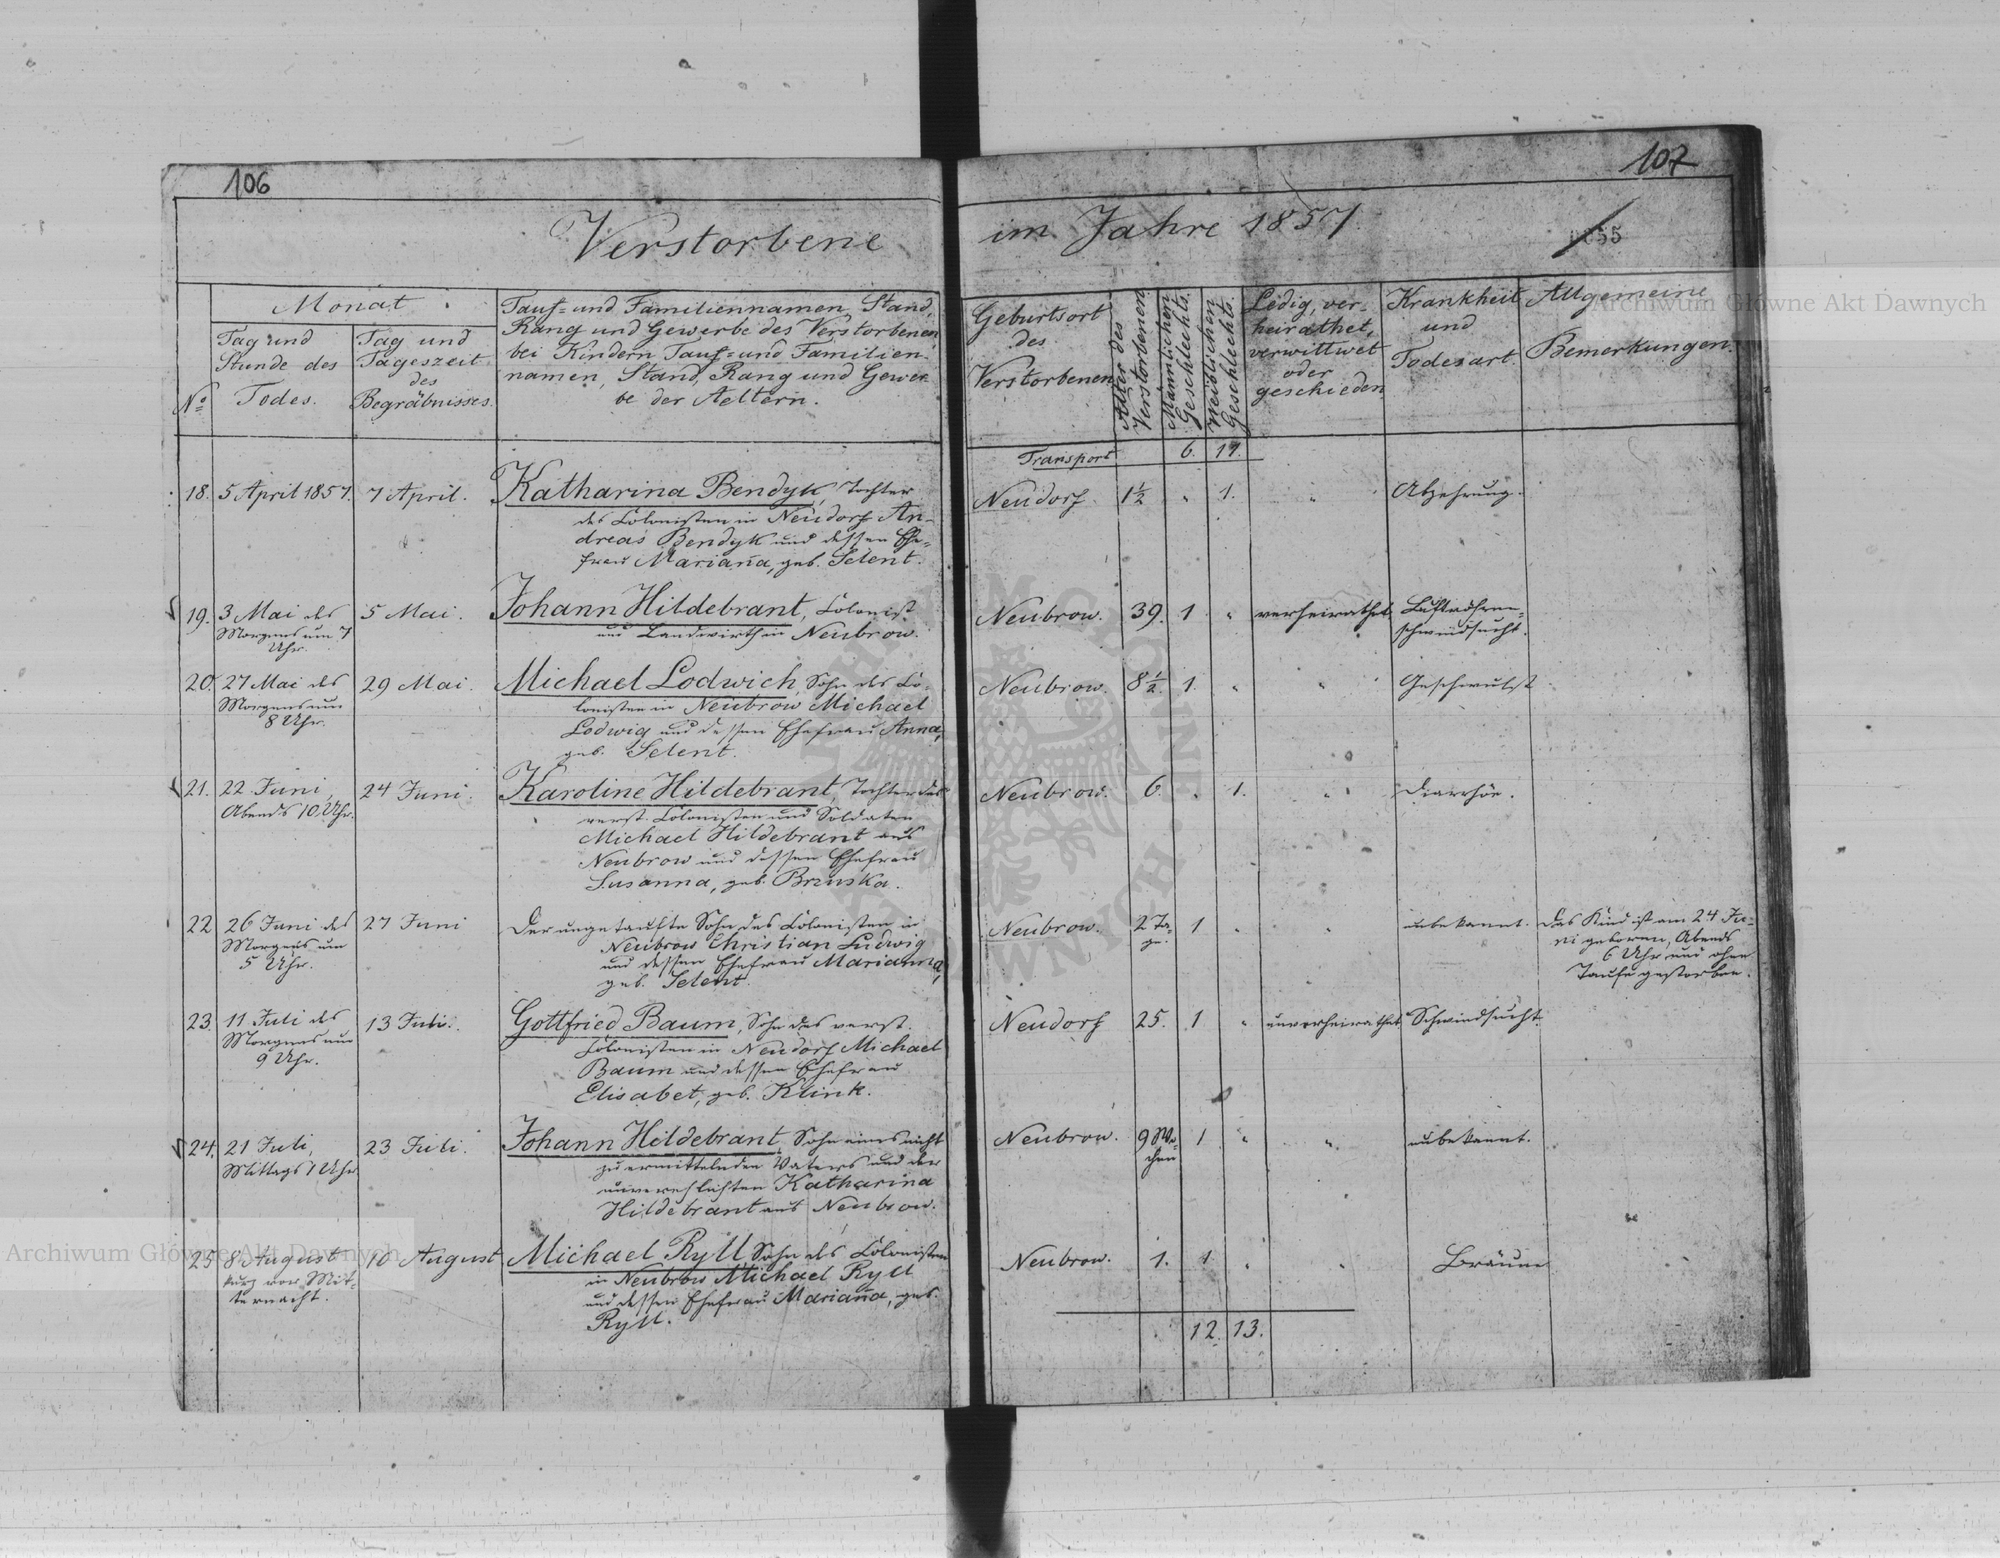 106
107
Verstorbene
im Jahre 1857.
55
Monat.
Nº
Tag und
Stunde des
Todes.
Tag und
Tageszeit
des
Begräbnisses.
Tauf= und Familiennamen, Stand,
Rang und Gewerbe des Verstorbenen
bei Kindern Tauf= und Familien-
namen, Stand, Rang und Gewer-
be der Aeltern.
Geburtsort
des
Verstorbenen
Alter des
Verstorbenen
Männlichen
Geschlechts.
Weiblichen
Geschlechts.
Ledig, ver-
heirathet,
verwittwet
oder
geschieden
Krankheit
und
Todesart.
Allgemeine
Bemerkungen.
Transport 6. 11.
18. 5 April 1857. 7 April. Katharina Bendyk, Tochter
des Colonisten in Neudorf An-
dreas Bendyk und dessen Ehe-
frau Mariana, geb. Selent.
Neudorf. 1½ " 1. " Abzehrung.
19. 3 Mai des
Morgens um 7
Uhr.
5 Mai. Johann Hildebrant, Colonist
und Landwirth in Neubrow.
Neubrow. 39. 1 " verheirathet Luftröhren=
schwindsucht.
20. 27 Mai des
Morgens um
8 Uhr.
29 Mai. Michael Lodwich, Sohn des Co-
lonisten in Neubrow Michael
Lodwig und dessen Ehefrau Anna,
geb. Selent.
Neubrow. 8½. 1. " " Geschwulst
21. 22 Juni,
Abends 10 Uhr.
24 Juni. Karoline Hildebrant, Tochter des
verst. Colonisten und Soldaten
Michael Hildebrant aus
Neubrow und dessen Ehefrau
Susanna, geb. Bruska.
Neubrow. 6. " 1. " Diarrhöe.
22 26 Juni des
Morgens um
5 Uhr.
27 Juni Der ungetaufte Sohn des Colonisten in
Neubrow Christian Ludwig
und dessen Ehefrau Marianna,
geb. Selent.
Neubrow. 2 Ta-
ge. 1 " " unbekannt. Das Kind ist am 24 Ju-
ni geboren, Abends
6 Uhr und ohne
Taufe gestorben.
23. 11 Juli des
Morgens um
9 Uhr.
13 Juli. Gottfried Baum, Sohn des verst.
Colonisten in Neudorf Michael
Baum und dessen Ehefrau
Elisabet, geb. Klink.
Neudorf 25. 1 " unverheirathet Schwindsucht.
24. 21 Juli,
Mittags 1 Uhr
23 Juli. Johann Hildebrant, Sohn eines nicht
zu ermittelnden Vaters und der
unverehlichten Katharina
Hildebrant aus Neubrow.
Neubrow. 9 Wo-
chen 1 " " unbekannt.
25 8 August
kurz vor Mit-
ternacht.
10 August Michael Ryll Sohn des Colonisten
in Neubrow Michael Ryll
und dessen Ehefrau Mariana, geb.
Ryll.
Neubrow. 1. 1 " " Bräune
12. 13.
Archiwum Główne Akt Dawnych
Archiwum Główne Akt Dawnych